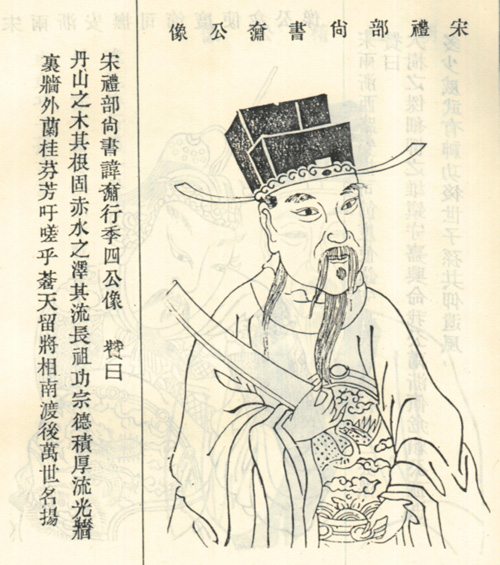 宋禮部尙書公像
宋禮部尙書諱行季四公像 贊曰
丹山之木其根固赤水之澤其流長祖功宗德積厚流光牆
裏牆外蘭桂芬芳吁嗟乎蒼天留將相南渡後萬世名揚